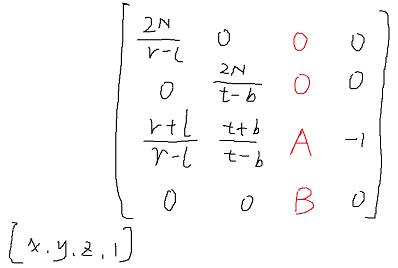 2N/r-l 0 0 0
0 2N/t-b 0 0
r+l/r-l t+b/t-b A -1
0 0 B 0
[x.y.z.1]